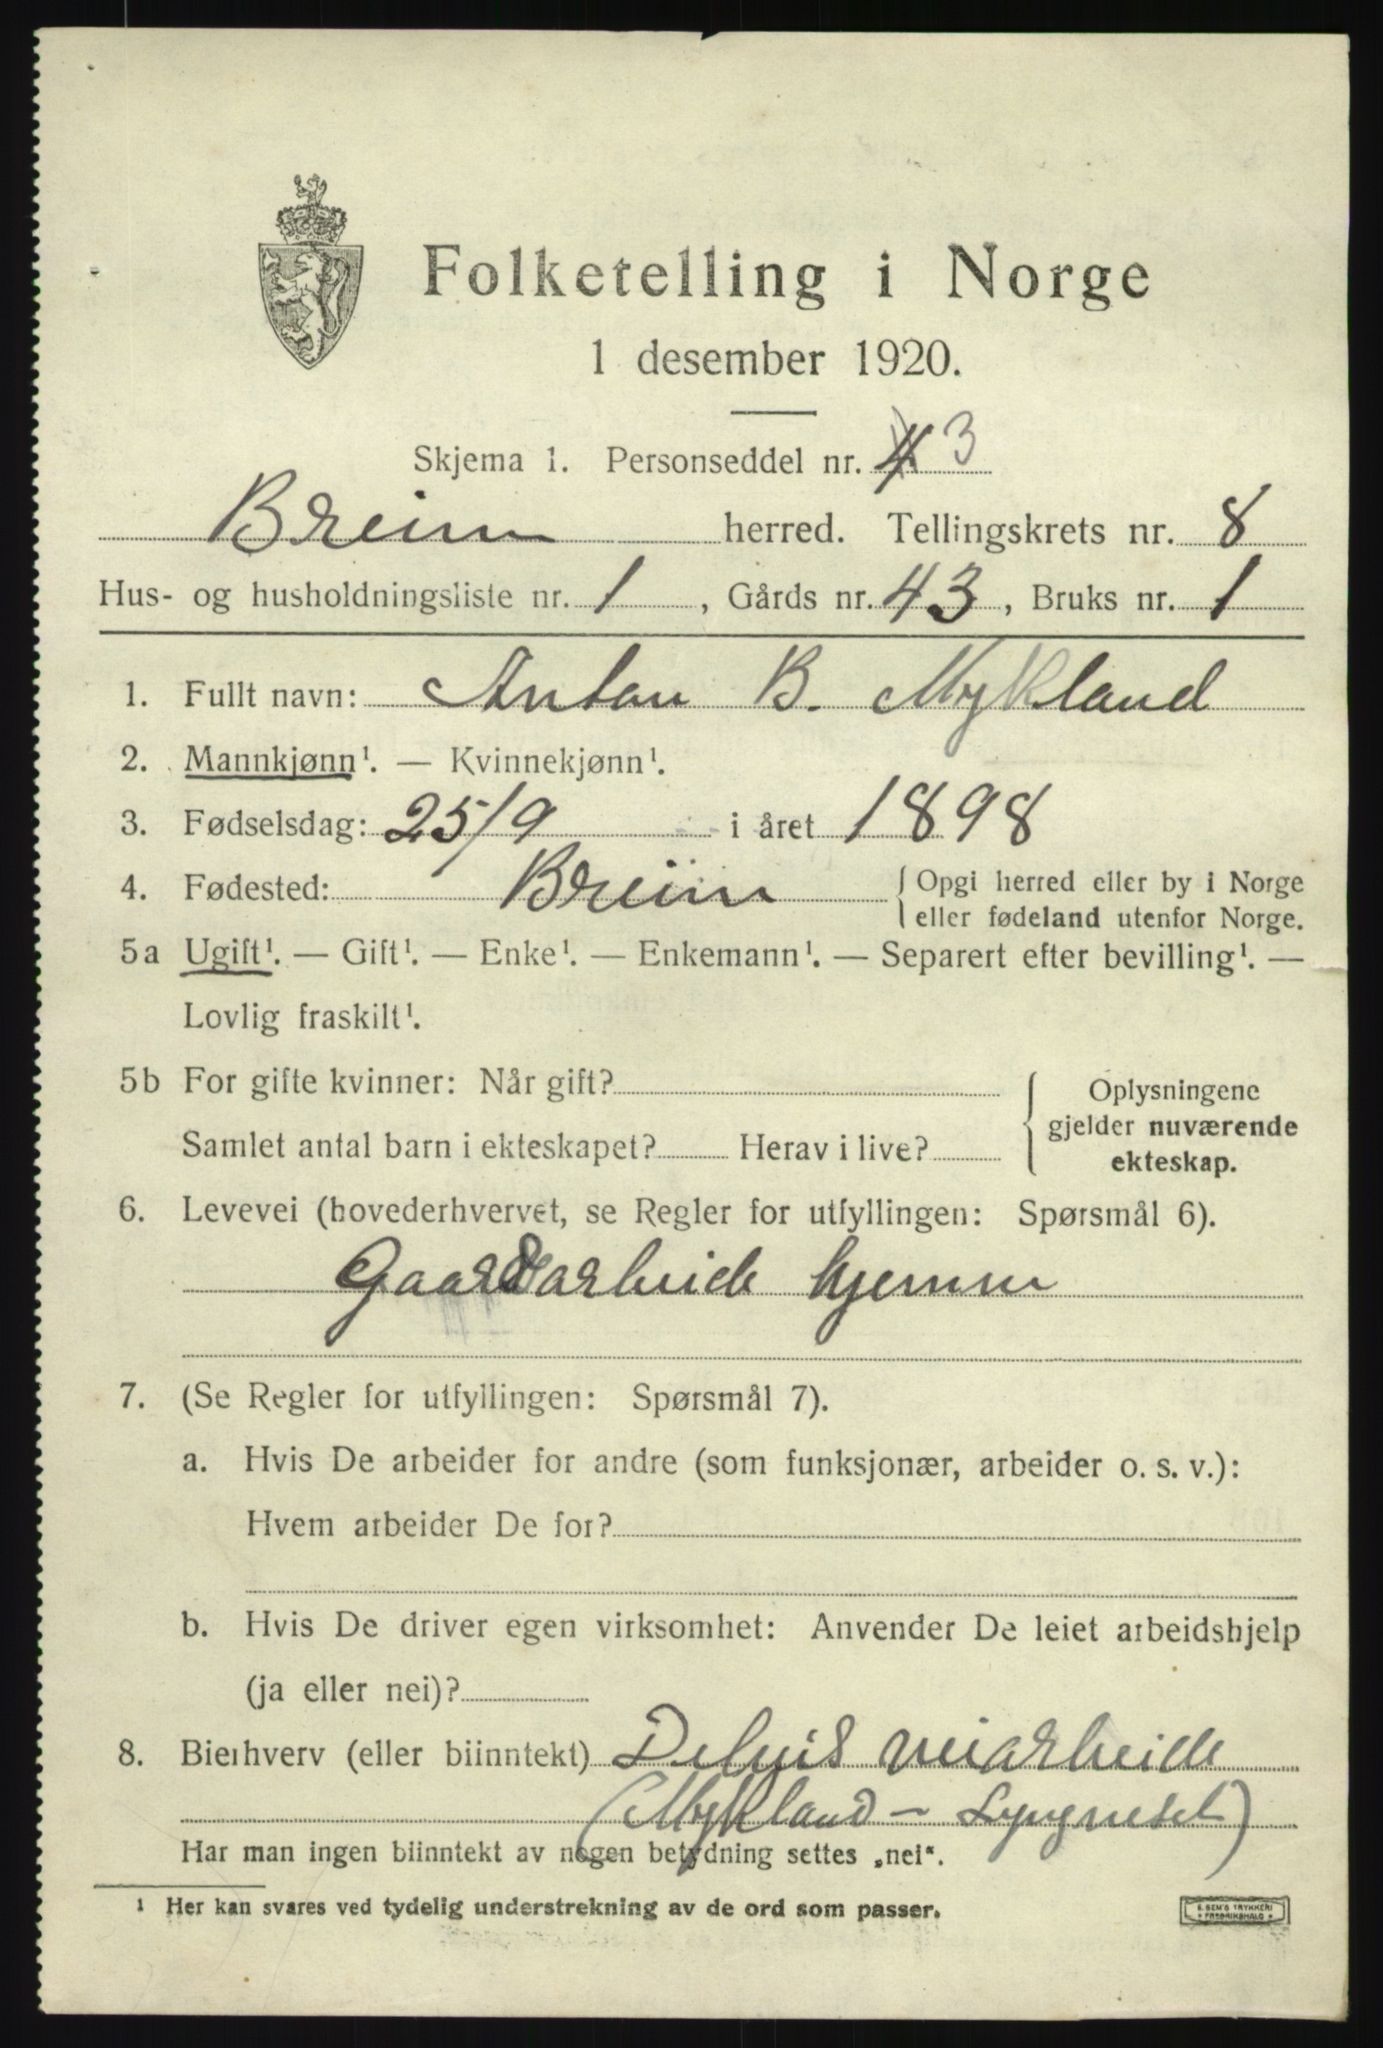 Folketelling i Norge
1 desember 1920.
Skjema 1. Personseddel nr. 4 3
Breim herred. Tellingskrets nr. 8
Hus- og husholdningsliste nr. 1, Gårds nr. 43, Bruks nr. 1
1. Fullt navn: Anton B. Mykland
2. Mannkjønn¹. — Kvinnekjønn¹.
3. Fødselsdag: 25/9 i året 1898
4. Fødested: Breim { Opgi herred eller by i Norge
eller fødeland utenfor Norge.
5a Ugift¹. — Gift¹. — Enke¹. — Enkemann¹. — Separert efter bevilling¹. —
Lovlig fraskilt¹.
5b For gifte kvinner: Når gift?
Samlet antal barn i ekteskapet? Herav i live?
Oplysningene
gjelder nuværende
ekteskap.
6. Levevei (hovederhvervet, se Regler for utfyllingen: Spørsmål 6).
Gaardsarbeide hjemme
7. (Se Regler for utfyllingen: Spørsmål 7).
a. Hvis De arbeider for andre (som funksjonær, arbeider o. s. v.):
Hvem arbeider De for?
b. Hvis De driver egen virksomhet: Anvender De leiet arbeidshjelp
(ja eller nei)?
8. Bierhverv (eller biinntekt) Delvis veiarbeide
(Mykland –
Har man ingen biinntekt av nogen betydning settes „nei“.
¹ Her kan svares ved tydelig understrekning av de ord som passer.
E. SEM'S TRYKKERI
• FREDRIKSHALD •